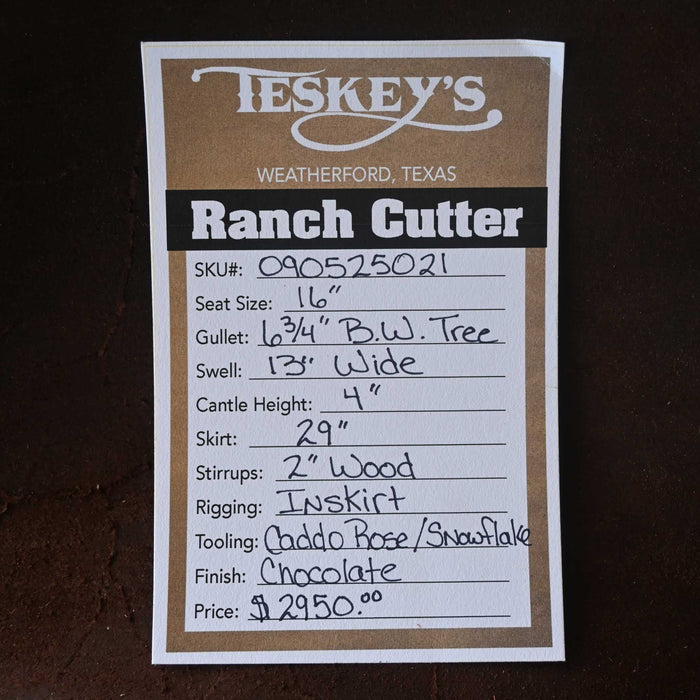 TESKEY'S
WEATHERFORD, TEXAS
Ranch Cutter
SKU#: 090525021
Seat Size: 16"
Gullet: 6 3/4" B.W. Tree
Swell: 13" Wide
Cantle Height: 4"
Skirt: 29"
Stirrups: 2" Wood
Rigging: Inskirt
Tooling: Caddo Rose/Snowflake
Finish: Chocolate
Price: $2950.00